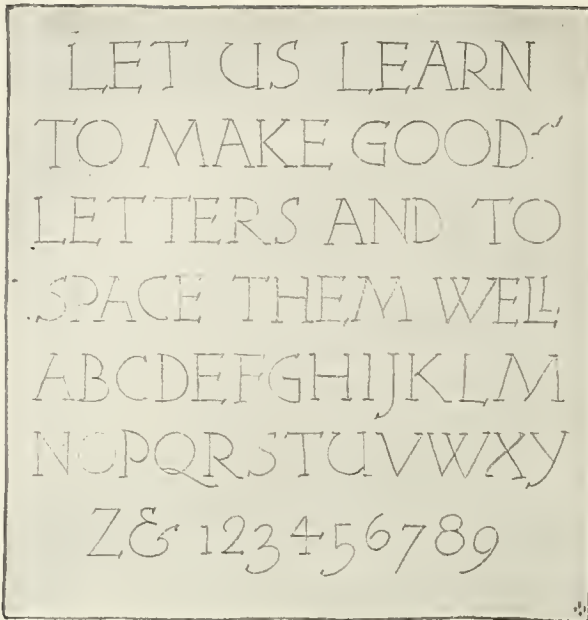 LET US LEARN
TO MAKE GOOD
LETTERS AND TO
SPACE THEM WELL
ABCDEFGHIJKLM
NOPQRSTUVWXY
Z& 123456789